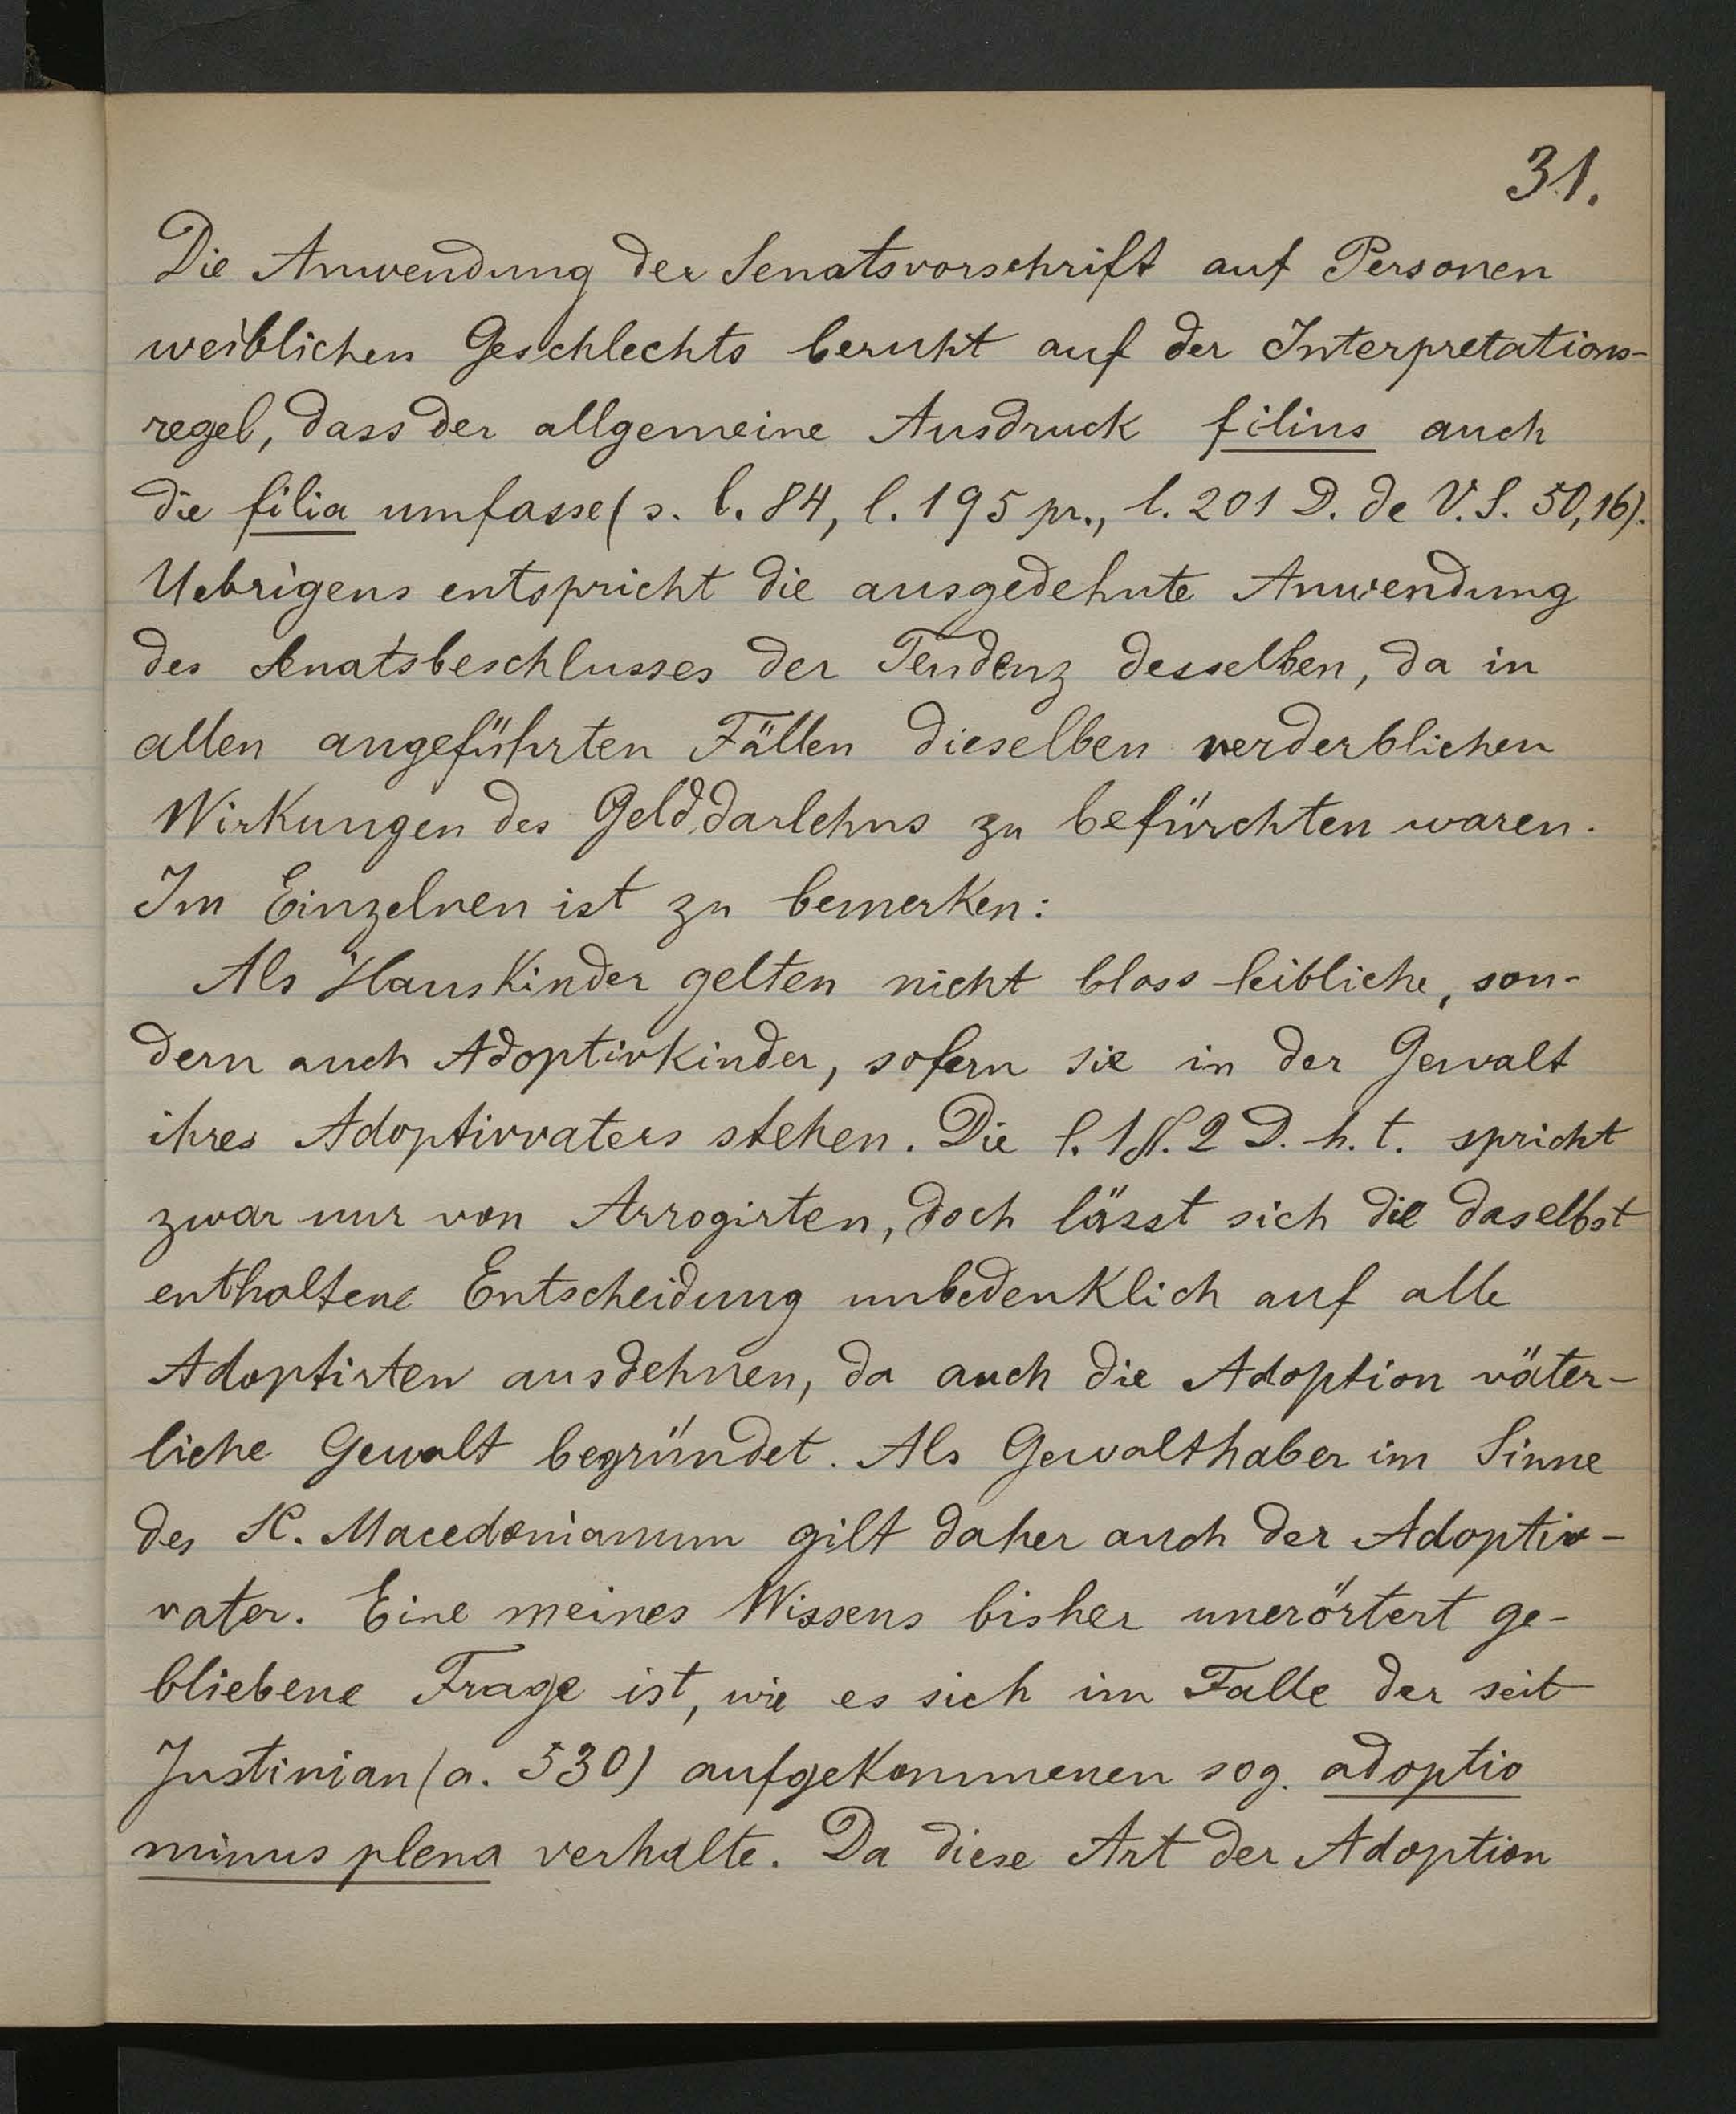 31.
Die Anwendung der Senatsvorschrift auf Personen
weiblichen Geschlechts beruht auf der Interpretations-
regel, dass der allgemeine Ausdruck filius auch
die filia umfasse (s. l. 84, l. 195 pr., l. 201 D. de V. S. 50,16).
Uebrigens entspricht die ausgedehnte Anwendung
des Senatsbeschlusses der Tendenz desselben, da in
allen angeführten Fällen dieselben verderblichen
Wirkungen des Gelddarlehns zu befürchten waren.
Im Einzelnen ist zu bemerken:
Als Hauskinder gelten nicht bloss leibliche, son-
dern auch Adoptivkinder, sofern sie in der Gewalt
ihres Adoptivvaters stehen. Die l. 1 §. 2 D. h. t. spricht
zwar nur von Arrogirten, doch lässt sich die daselbst
enthaltene Entscheidung unbedenklich auf alle
Adoptirten ausdehnen, da auch die Adoption väter-
liche Gewalt begründet. Als Gewalthaber im Sinne
des SC. Macedonianum gilt daher auch der Adoptiv-
vater. Eine meines Wissens bisher unerörtert ge-
bliebene Frage ist, wie es sich im Falle der seit
Justinian (a. 530) aufgekommenen sog. adoptio
minus plena verhalte. Da diese Art der Adoption